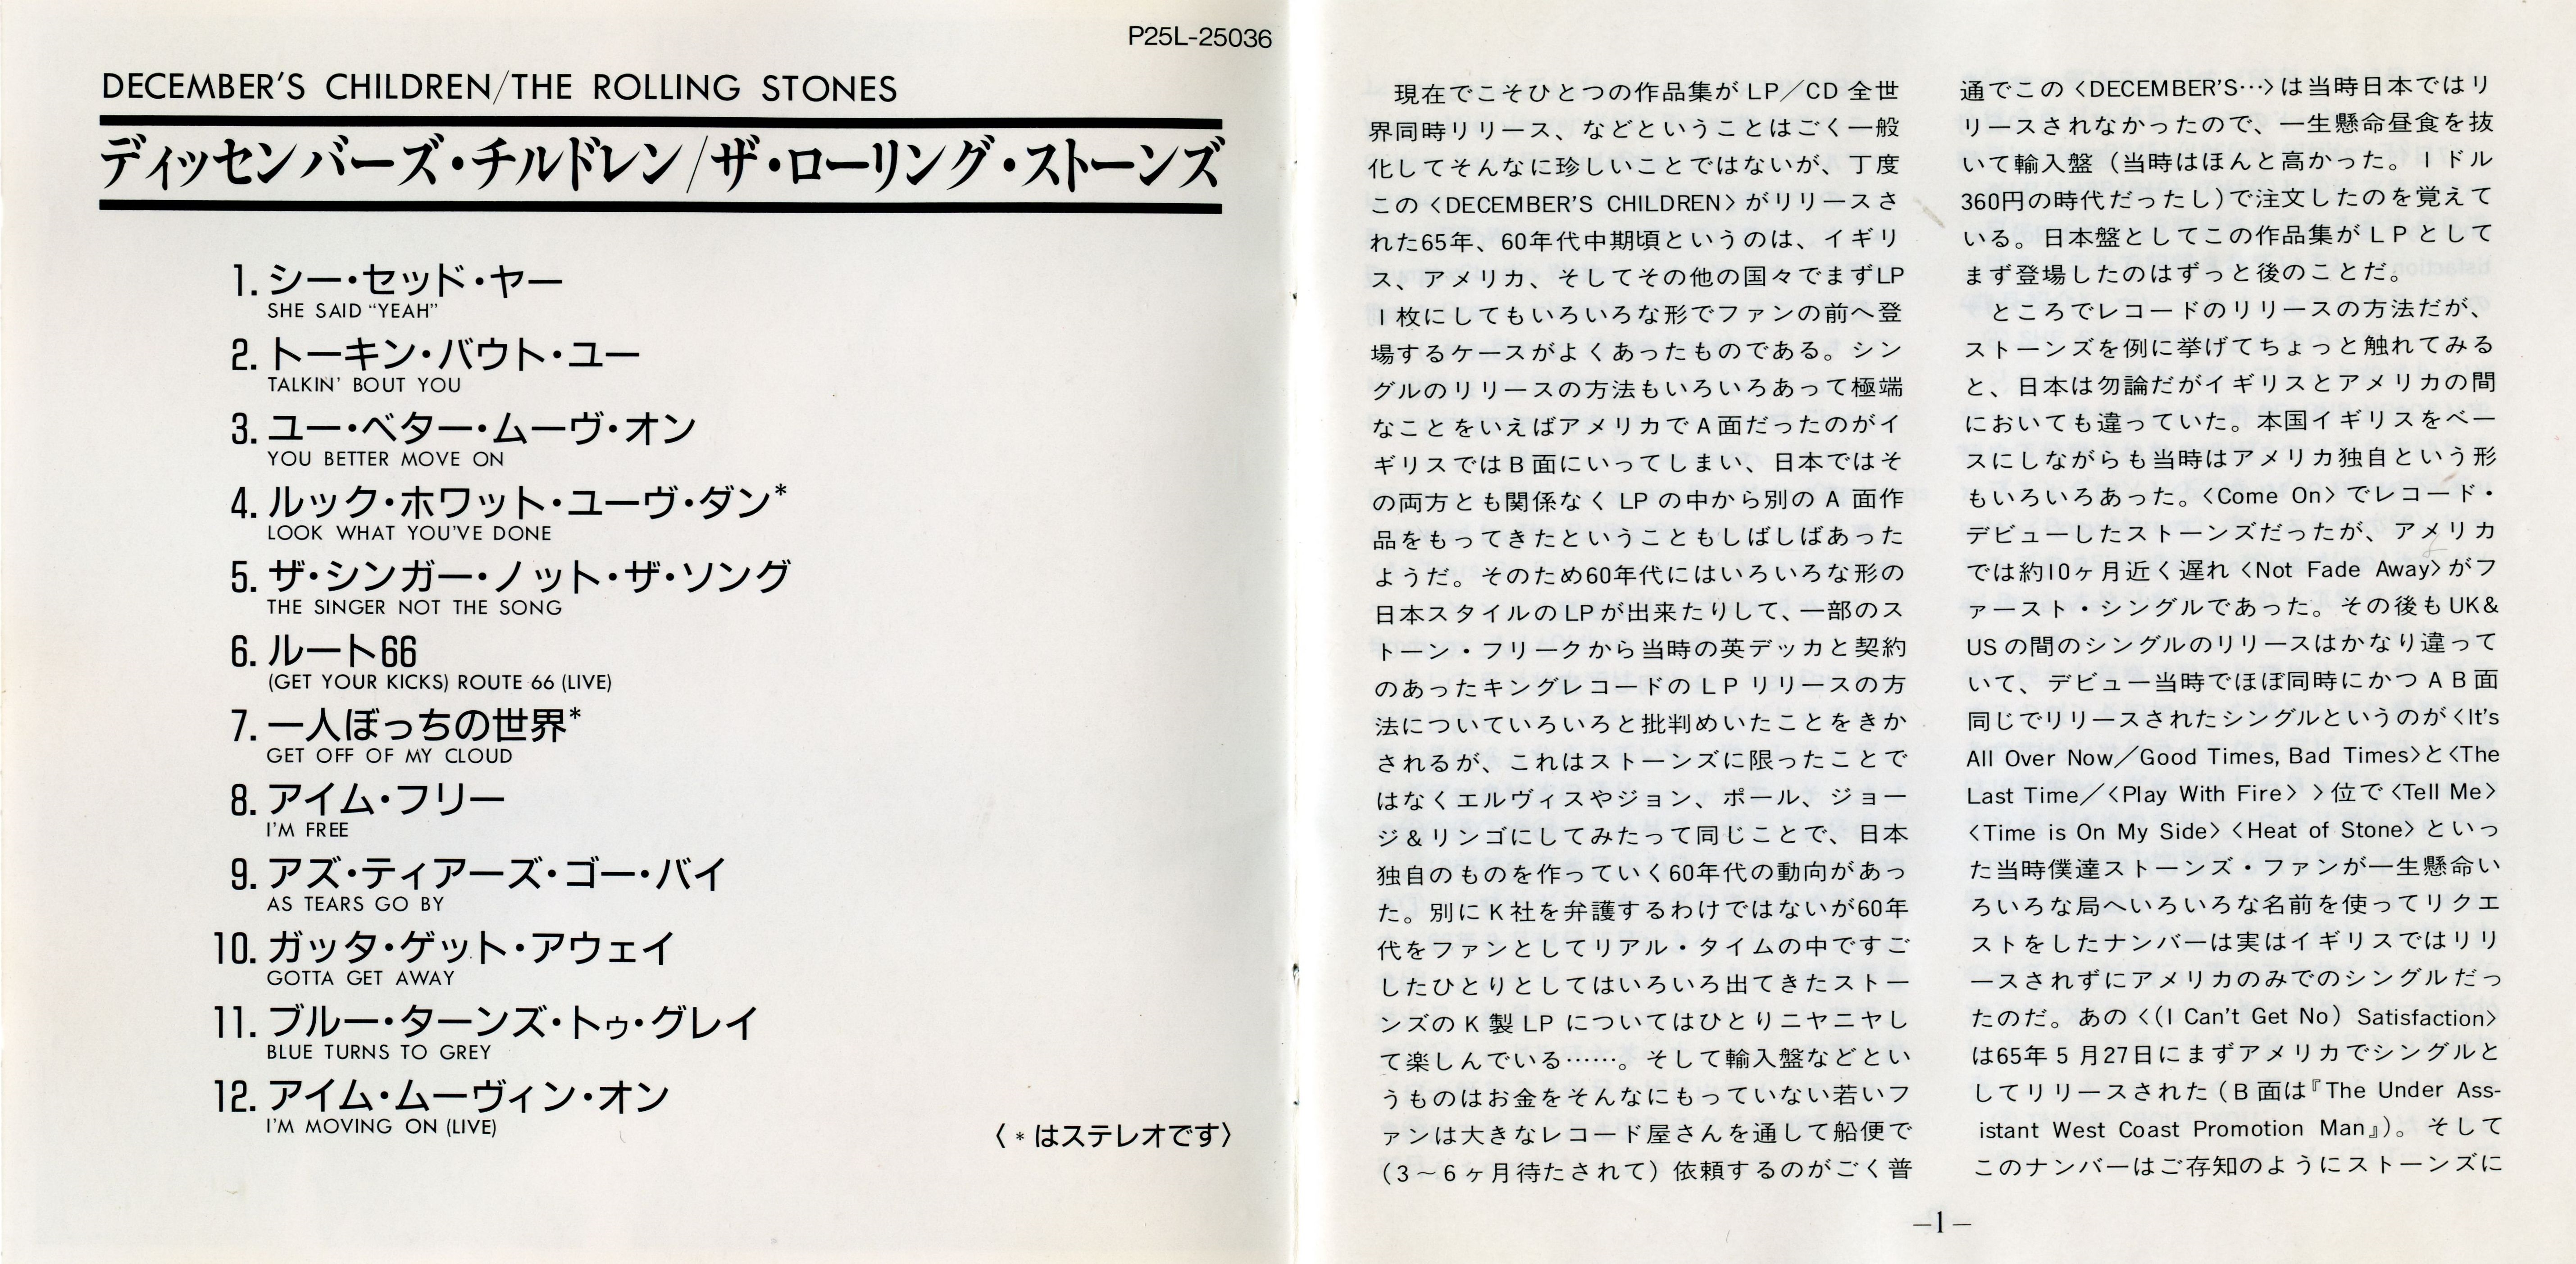 P25L-25036
DECEMBER'S CHILDREN/THE ROLLING STONES
ディッセンバーズ・チルドレン/ザ・ローリング・ストーンズ
1. シー・セッド・ヤー
SHE SAID "YEAH"
2. トーキン・バウト・ユー
TALKIN' BOUT YOU
3. ユー・ベター・ムーヴ・オン
YOU BETTER MOVE ON
4. ルック・ホワット・ユーヴ・ダン*
LOOK WHAT YOU'VE DONE
5. ザ・シンガー・ノット・ザ・ソング
THE SINGER NOT THE SONG
6. ルート66
(GET YOUR KICKS) ROUTE 66 (LIVE)
7. 一人ぼっちの世界*
GET OFF OF MY CLOUD
8. アイム・フリー
I'M FREE
9. アズ・ティアーズ・ゴー・バイ
AS TEARS GO BY
10. ガッタ・ゲット・アウェイ
GOTTA GET AWAY
11. ブルー・ターンズ・トゥ・グレイ
BLUE TURNS TO GREY
12. アイム・ムーヴィン・オン
I'M MOVING ON (LIVE)
〈*はステレオです〉
現在でこそひとつの作品集がLP／CD全世
界同時リリース、などということはごく一般
化してそんなに珍しいことではないが、丁度
この〈DECEMBER'S CHILDREN〉がリリースさ
れた65年、60年代中期頃というのは、イギリ
ス、アメリカ、そしてその他の国々でまずLP
1枚にしてもいろいろな形でファンの前へ登
場するケースがよくあったものである。シン
グルのリリースの方法もいろいろあって極端
なことをいえばアメリカでA面だったのがイ
ギリスではB面にいってしまい、日本ではそ
の両方とも関係なくLPの中から別のA面作
品をもってきたということもしばしばあった
ようだ。そのため60年代にはいろいろな形の
日本スタイルのLPが出来たりして、一部のス
トーン・フリークから当時の英デッカと契約
のあったキングレコードのLPリリースの方
法についていろいろと批判めいたことをきか
されるが、これはストーンズに限ったことで
はなくエルヴィスやジョン、ポール、ジョー
ジ&リンゴにしてみたって同じことで、日本
独自のものを作っていく60年代の動向があっ
た。別にK社を弁護するわけではないが60年
代をファンとしてリアル・タイムの中ですご
したひとりとしてはいろいろ出てきたストー
ンズのK製LPについてはひとりニヤニヤし
て楽しんでいる……。そして輸入盤などとい
うものはお金をそんなにもっていない若いフ
ァンは大きなレコード屋さんを通して船便で
(3～6ヶ月待たされて）依頼するのがごく普
通でこの〈DECEMBER'S…〉は当時日本ではリ
リースされなかったので、一生懸命昼食を抜
いて輸入盤（当時はほんと高かった。1ドル
360円の時代だったし)で注文したのを覚えて
いる。日本盤としてこの作品集がLPとして
まず登場したのはずっと後のことだ。
ところでレコードのリリースの方法だが、
ストーンズを例に挙げてちょっと触れてみる
と、日本は勿論だがイギリスとアメリカの間
においても違っていた。本国イギリスをベー
スにしながらも当時はアメリカ独自という形
もいろいろあった。〈Come On〉でレコード・
デビューしたストーンズだったが、アメリカ
では約10ヶ月近く遅れ〈Not Fade Away〉がフ
ァースト・シングルであった。その後もUK&
USの間のシングルのリリースはかなり違って
いて、デビュー当時でほぼ同時にかつAB面
同じでリリースされたシングルというのが〈It's
All Over Now／Good Times, Bad Times〉と〈The
Last Time／〈Play With Fire〉〉位で〈Tell Me〉
〈Time is On My Side〉〈Heat of Stone〉といっ
た当時僕達ストーンズ・ファンが一生懸命い
ろいろな局へいろいろな名前を使ってリクエ
ストをしたナンバーは実はイギリスではリリ
ースされずにアメリカのみでのシングルだっ
たのだ。あの〈(I Can't Get No) Satisfaction〉
は65年5月27日にまずアメリカでシングルと
してリリースされた（B面は『The Under Ass-
istant West Coast Promotion Man』)。そして
このナンバーはご存知のようにストーンズに
—1—